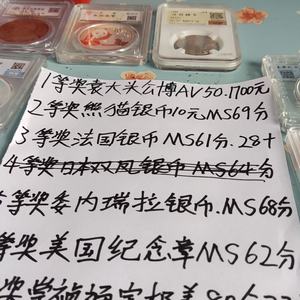 1等奖袁大头公博AV50.1700元
2等奖熊猫银币10元MS69分
3等奖法国银币MS61分.28+
4等奖日本双凤银币MS64分
等奖委内瑞拉银币.MS68分
等奖美国纪念章MS62分